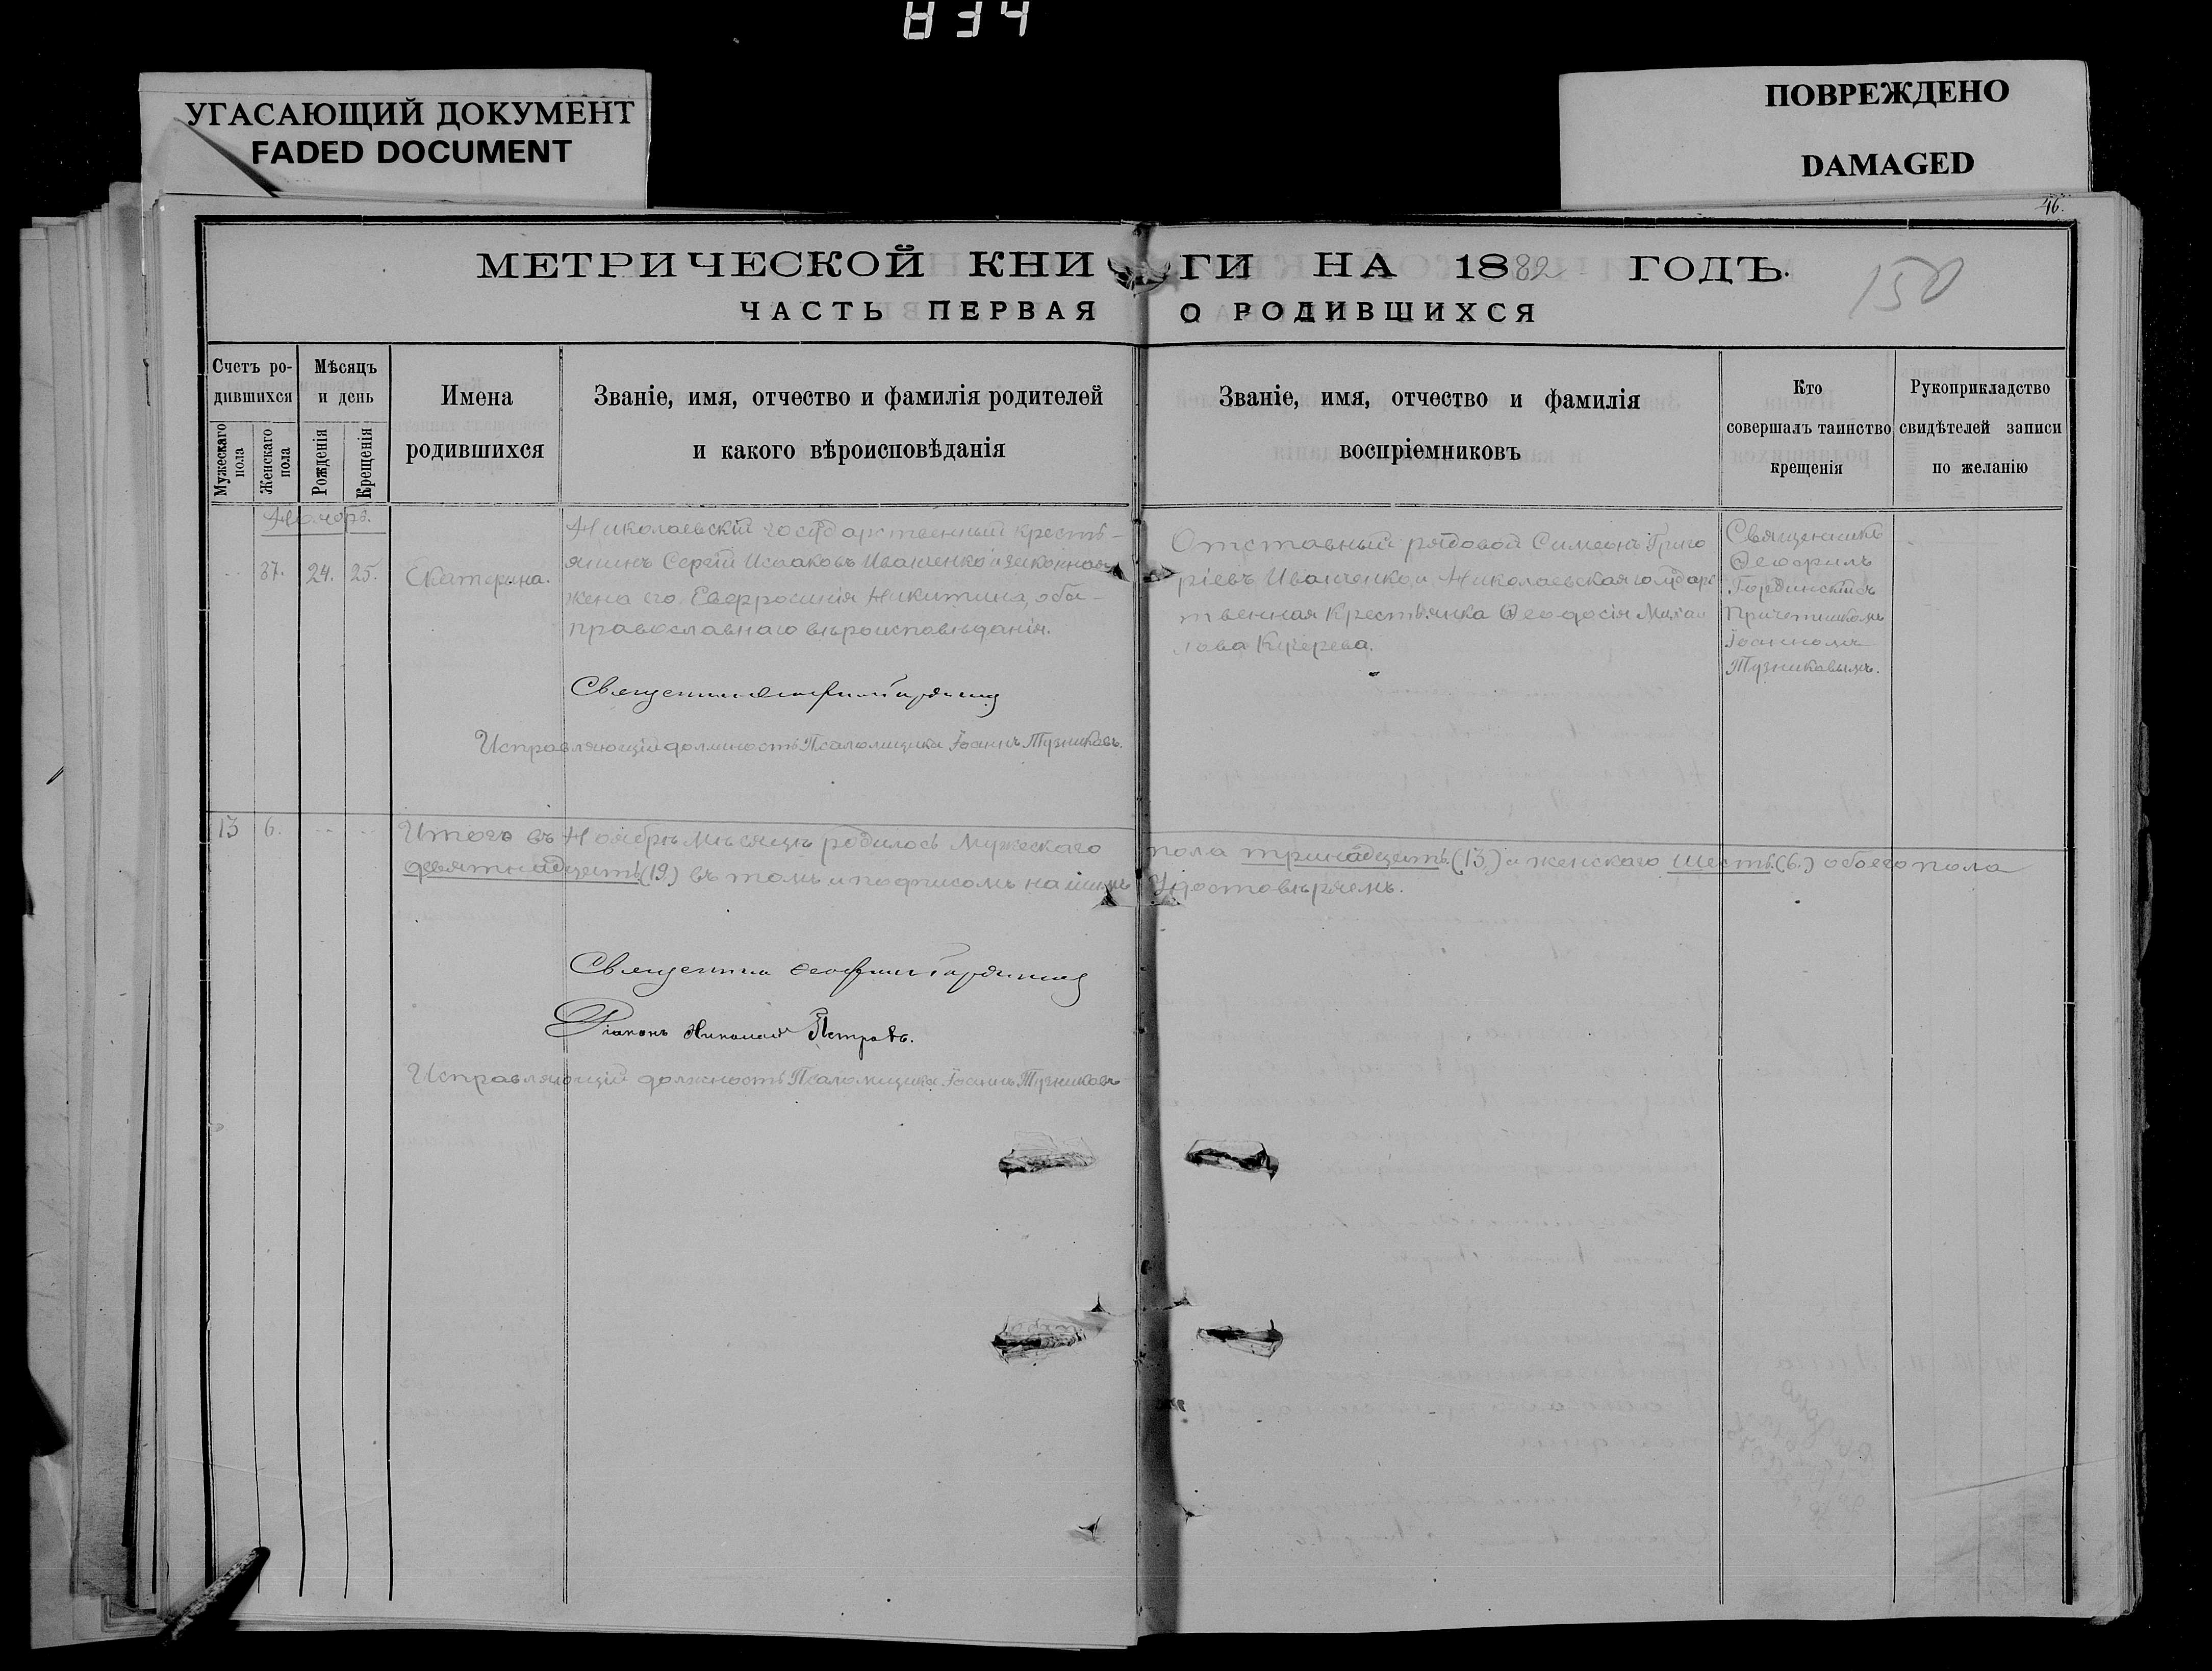 834
УГАСАЮЩИЙ ДОКУМЕНТ
FADED DOCUMENT
ПОВРЕЖДЕНО
DAMAGED
46.
МЕТРИЧЕСКОЙ КНИГИ НА 1882 ГОДЪ.
150
ЧАСТЬ ПЕРВАЯ О РОДИВШИХСЯ
Счетъ родившихся
Мужескаго пола
Женскаго пола
Мѣсяцъ и день
Рожденія
Крещенія
Имена
родившихся
Званіе, имя, отчество и фамилія родителей
и какого вѣроисповѣданія
Званіе, имя, отчество и фамилія
воспріемниковъ
Кто
совершалъ таинство
крещенія
Рукоприкладство
свидѣтелей записи
по желанію
37. 24. 25. Екатерина.
Николаевскій государственный кресть-
янинъ Сергій Исааковъ Иванченко и законная
жена его Евфросинія Никитина, оба
православнаго вѣроисповѣданія.
Отставный рядовой Симеонъ Григо
ріевъ Иванченко, и Николаевская государс
твенная крестьянка Ѳеодосія Михаи
лова Кучерева.
Священникъ
Ѳеофилъ
съ
Причетникомъ
Іоанномъ
Тузниковымъ.
Священник Ѳеофил
Исправляющій должность Псаломщика Іоаннъ Тузниковъ.
13 6.
Итого въ Ноябрѣ мѣсяцѣ родилось Мужескаго пола тринадцать (13) и женскаго шесть (6.) обоего пола
девятнадцать (19.) въ томъ и подписомъ нашимъ Удостовѣряемъ.
Священник Ѳеофил
Діаконъ Николай Петровъ.
Исправляющій должность Псаломщика Іоаннъ Тузниковъ